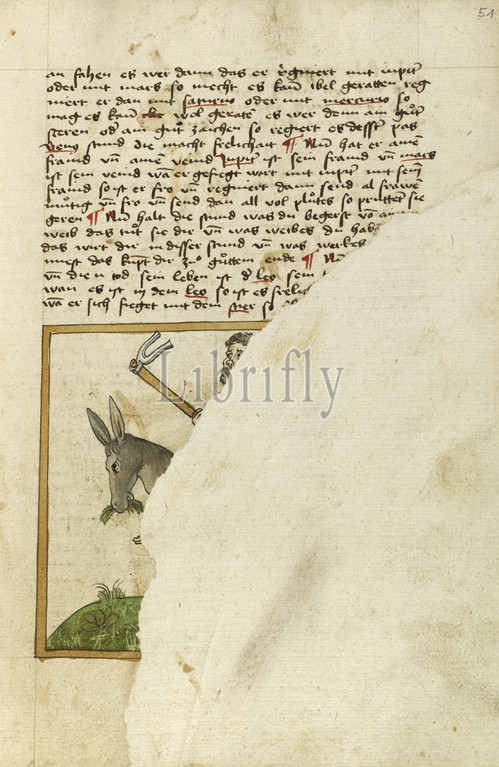 51
an fahen es wer dann das er regniert mit iupiter
oder mit mars so mecht es kaum ibel geratten reg
niert er dan mit saturno oder mit mercurio so
mag es kaum wol gerate es wer denn am gůt
steren od am gůt zaichen so regiert es desster pas
venus stund die macht frelichait ¶ Nun hat er ainē
fraind vn̄ ainē veind Jupiter ist sein fraind vn̄ mars
ist sein veind wā er gefiegt wirt mit iupiter mit seinē
fraind so ist er fro vn̄ regniert dann send al frawē
můtig vn̄ fro vn̄ send dan all vol plůtes so sie
geren ¶ Nun halt die stund was du begerst vō ainem
weib das tůt sie dir vn̄ was weibes du hab
das wirt dir in disser stund vn̄ was werkes
das kupt dir zuo gůttem ende ¶
vn̄ die n tod sein leben ist d leo sein
wan es ist in dem leo so ist es frelich
wā er sich fieget mit dem stier so
Librifly